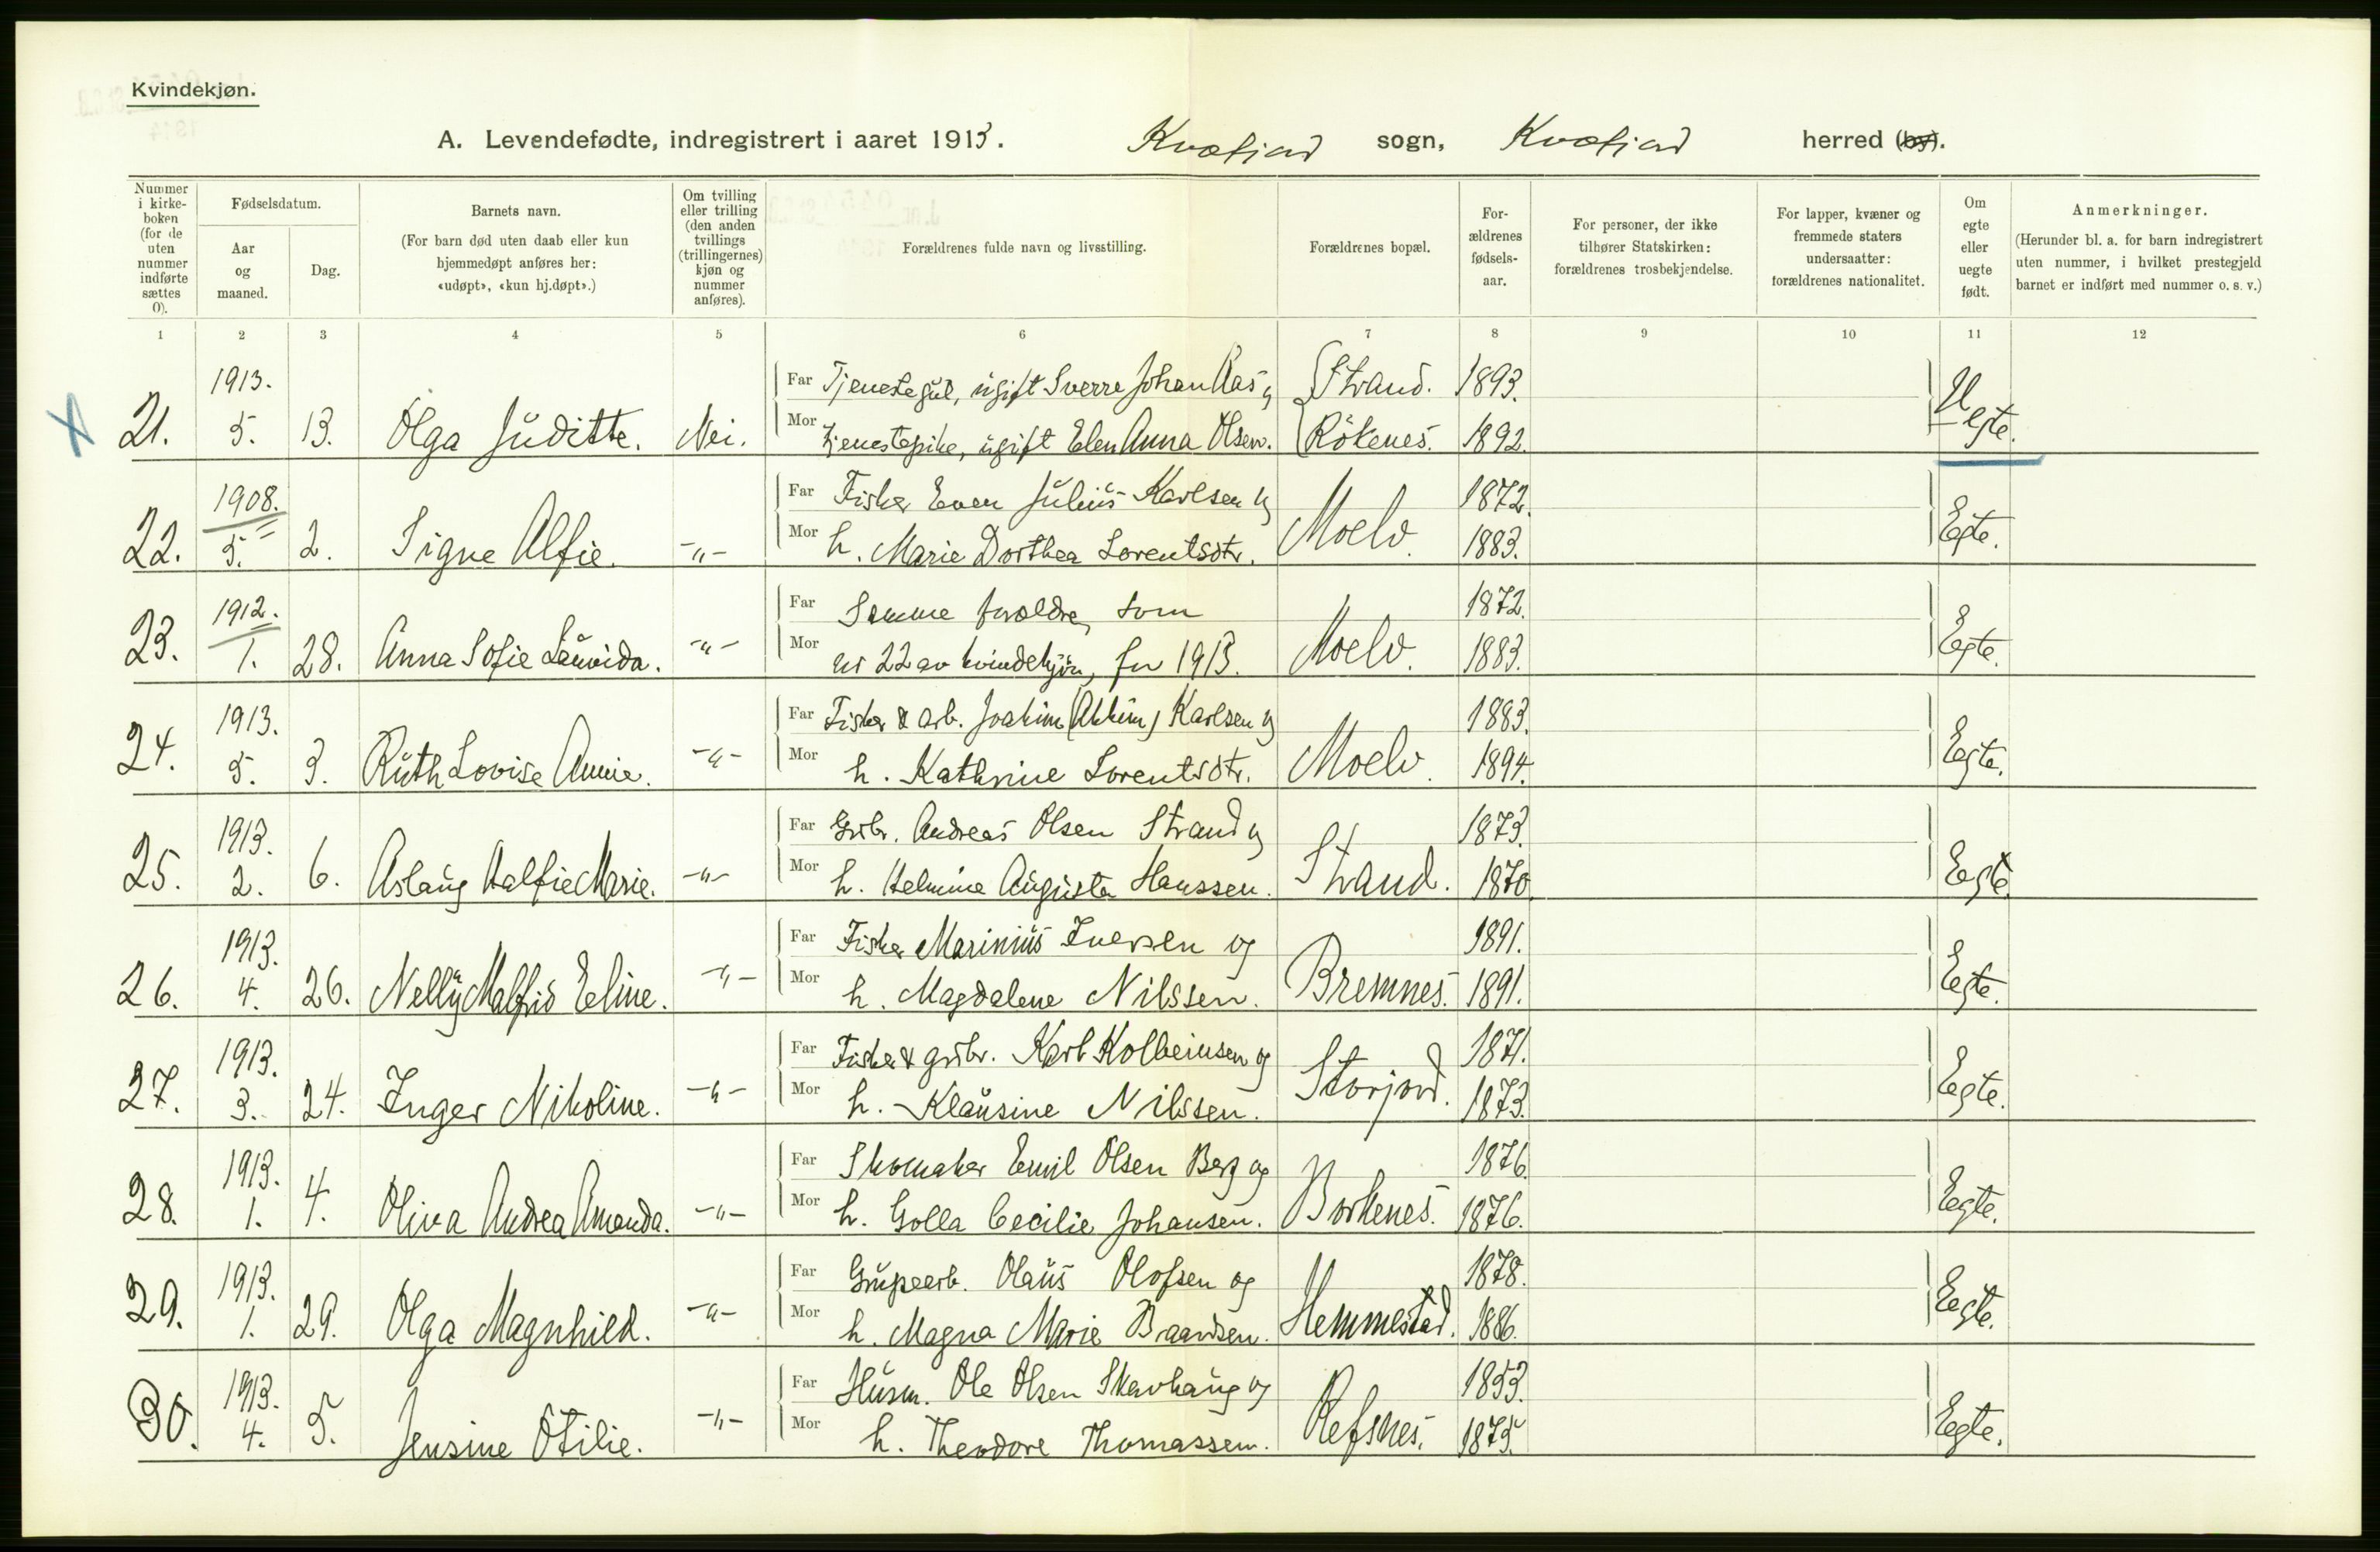 Kvindekjøn.
A. Levendefødte, indregistrert i aaret 1913. Kvæfjord sogn, Kvæfjord herred (by).
Nummer i kirke-boken (for de uten nummer indførte sættes 0).
Fødselsdatum.
Aar og maaned.
Dag.
Barnets navn.
(For barn død uten daab eller kun hjemmedøpt anføres her: «udøpt», «kun hj.døpt».)
Om tvilling eller trilling (den anden tvillings (trillingernes) kjøn og nummer anføres).
Forældrenes fulde navn og livsstilling.
Forældrenes bopæl.
For-ældrenes fødsels-aar.
For personer, der ikke tilhører Statskirken: forældrenes trosbekjendelse.
For lapper, kvæner og fremmede staters undersaatter: forældrenes nationalitet.
Om egte eller uegte født.
Anmerkninger.
(Herunder bl. a. for barn indregistrert uten nummer, i hvilket prestegjeld barnet er indført med nummer o. s. v.)
1 2 3 4 5 6 7 8 9 10 11 12
X
1913. Far Tjenestegut, ugift Sverre Johan Aas og Strand. 1893.
21. 5. 13. Olga Juditte. Nei. Mor tjenestepike, ugift Elen Anna Olsen. Rökenes. 1892. Uegte.
1908. Far Fisker Even Julius Karlsen og 1872.
22. 5. 2. Signe Alfie. -"- Mor h. Marie Dorthea Lorentsdtr. Moelv. 1883. Egte.
1912. Far Samme forældre, som 1872.
23. 1. 28. Anna Sofie Lauvida. -"- Mor nr 22 av kvindekjön, for 1913. Moelv. 1883. Egte.
1913. Far Fisker & arb. Joakim (Akkim) Karlsen og 1883.
24. 5. 3. Ruth Lovise Annie. -"- Mor h. Kathrine Lorentsdtr. Moelv. 1894. Egte.
1913. Far Grdbr. Andreas Olsen Strand og 1873.
25. 2. 6. Aslaug Halfie Marie. -"- Mor h. Helmine Augusta Hanssen. Strand. 1870. Egte.
1913. Far Fisker Marinius Iversen og 1891.
26. 4. 26. Nelly Malfrid Eline. -"- Mor h. Magdalene Nilssen. Bremnes. 1891. Egte.
1913. Far Fisker & grdbr. Karl Kolbeinsen og 1871.
27. 3. 24. Inger Nikoline. -"- Mor h. Klausine Nilssen. Storjord. 1873. Egte.
1913. Far Skomaker Emil Olsen Berg og 1876.
28. 1. 4. Oliva Andrea Amanda. -"- Mor h. Golla Cecilie Johansen. Borkenes. 1876. Egte.
1913. Far Grupearb. Olaus Olofsen og 1878.
29. 1. 29. Olga Magnhild. -"- Mor h. Magna Marie Baardsen. Hemmestad. 1886. Egte.
1913. Far Husm. Ole Olsen Skavhaug og 1853.
30. 4. 5. Jensine Otilie. -"- Mor h. Theodore Thomassen. Refsnes. 1875. Egte.